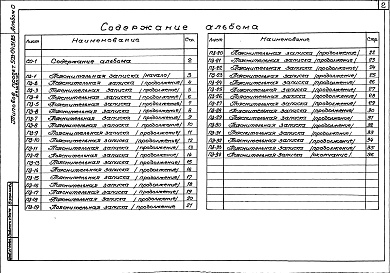 2
Содержание альбома
Лист Наименование Стр.
СО-1 Содержание альбома 2
ПЗ-1 Пояснительная записка (начало) 3
ПЗ-2 Пояснительная записка (продолжение) 4
ПЗ-3 Пояснительная записка (продолжение) 5
ПЗ-4 Пояснительная записка (продолжение) 6
ПЗ-5 Пояснительная записка (продолжение) 7
ПЗ-6 Пояснительная записка (продолжение) 8
ПЗ-7 Пояснительная записка (продолжение) 9
ПЗ-8 Пояснительная записка (продолжение) 10
ПЗ-9 Пояснительная записка (продолжение) 11
ПЗ-10 Пояснительная записка (продолжение) 12
ПЗ-11 Пояснительная записка (продолжение) 13
ПЗ-12 Пояснительная записка (продолжение) 14
ПЗ-13 Пояснительная записка (продолжение) 15
ПЗ-14 Пояснительная записка (продолжение) 16
ПЗ-15 Пояснительная записка (продолжение) 17
ПЗ-16 Пояснительная записка (продолжение) 18
ПЗ-17 Пояснительная записка (продолжение) 19
ПЗ-18 Пояснительная записка (продолжение) 20
ПЗ-19 Пояснительная записка (продолжение) 21
Лист Наименование Стр.
ПЗ-20 Пояснительная записка (продолжение) 22
ПЗ-21 Пояснительная записка (продолжение) 23
ПЗ-22 Пояснительная записка (продолжение) 24
ПЗ-23 Пояснительная записка (продолжение) 25
ПЗ-24 Пояснительная записка (продолжение) 26
ПЗ-25 Пояснительная записка (продолжение) 27
ПЗ-26 Пояснительная записка (продолжение) 28
ПЗ-27 Пояснительная записка (продолжение) 29
ПЗ-28 Пояснительная записка (продолжение) 30
ПЗ-29 Пояснительная записка (продолжение) 31
ПЗ-30 Пояснительная записка (продолжение) 32
ПЗ-31 Пояснительная записка (продолжение) 33
ПЗ-32 Пояснительная записка (продолжение) 34
ПЗ-33 Пояснительная записка (продолжение) 35
ПЗ-34 Пояснительная записка (окончание) 36
Типовой проект Альбом 0